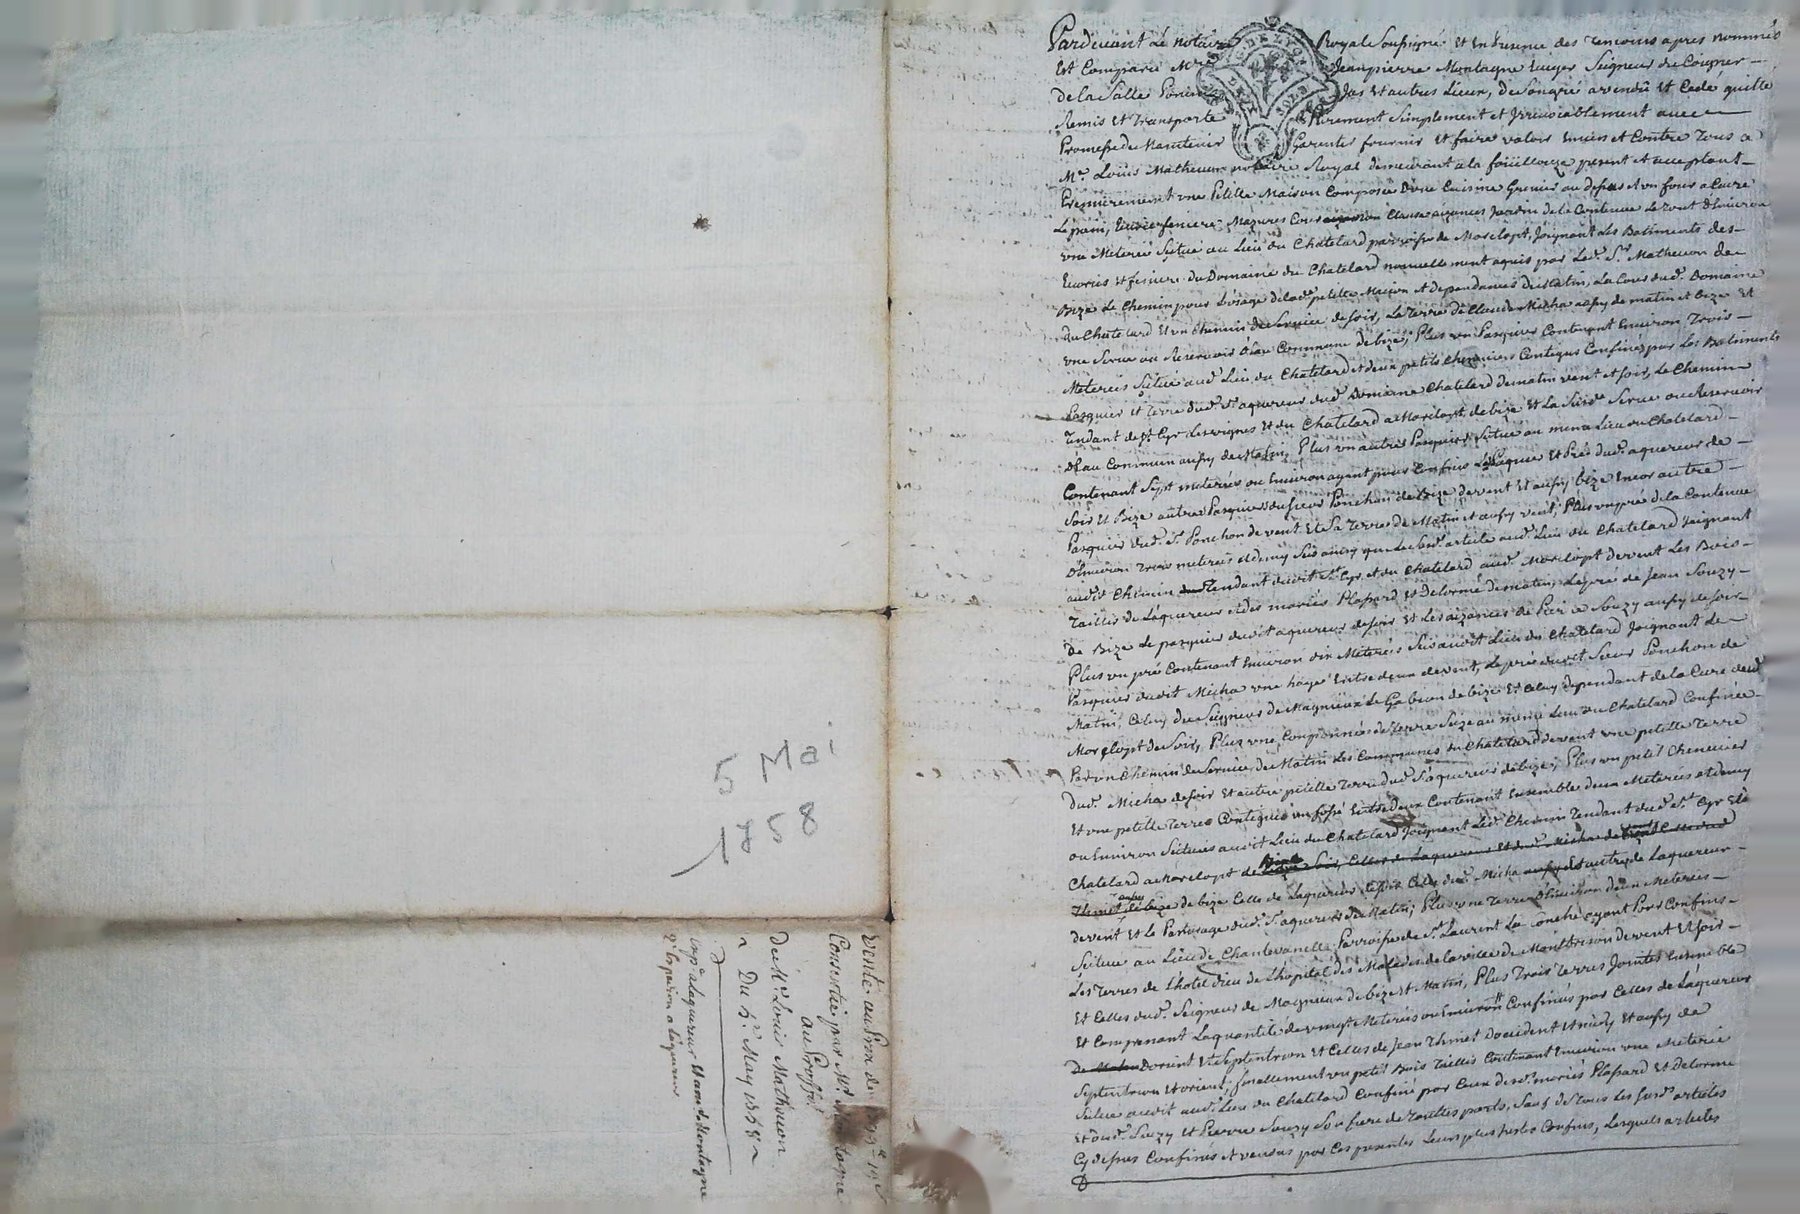 Pardevant Le Notaire Royal Soussigné Et En Presence des Temoins apres nommés
Est Comparu Mre Jeanpierre Montagne Ecuyer Seigneur de Poigner
de la Salle et autres Lieux, de Son gré a vendu Et Cedé quitte
Remis Et Transporte Purement Simplement et Irrevocablement avec
Promesse de Maintenir Garentir fournir Et faire valoir Envers et Contre Tous a
Me. Louis Matheuon notaire Royal demeurant a la fouillouze present et acceptant
Premierement une Petitte Maison Composée d'une Cuisine Grenier au dessus et un four a Cuire
Le pain, Ecurie feniere Mazures Cour Clause aizances Jardin de la Contenue Le tout d'Environ
une Meterée Scitué au Lieu du Chatelard parroisse de Marclopt, Joignant Les Batiments des
Ecuries Et feniere du Domaine du Chatelard nouvellement aquis par Led. Sr. Matheuon de
Bize Le Chemin pour L'usage de lade petitte Maison et dependances de Matin, La Cour dud. Domaine
du Chatelard Et un Chemin de Service de Soir, La Terre de Claude Micha aussy de matin et bize Et
une Serve ou Reservoir d'Eau Commune de bize; Plus un Pasquier Contenant Environ Trois
Meterées Scitué aud. Lieu du Chatelard et deux petits Cheneviers Contigus Confinez par Les Batiments
Pasquier Et Terre dud. Sr aquereur dud. Domaine Chatelard de matin vent et Soir, Le Chemin
Tendant de St Cyr Les vignes Et du Chatelard a Marclopt de bize Et La Susde Serve ou Reservoir
d'Eau Commun aussy de Matin, Plus un autre Pasquier Scitué au meme Lieu du Chatelard
Contenant Sept meterées ou Environ ayant pour Confins Le Pasquier Et Pré dud. aquereur de
Soir Et Bize autre Pasquier du Sieur Ponchon de Bize de vent Et aussy bize Encor autre
Pasquier dud. Sr. Ponchon de vent Et Sa Terre de Matin et aussy vent, Plus un pré de la Contenue
D'Environ Trois meterées et demy Scis ainsy que Le Susd. article aud. Lieu du Chatelard Joignant
audit Chemin Tendant dudit St Cyr et du Chatelard aud. Marclopt de vent Les Bois
Taillis de L'aquereur et des mariés Plassard Et Delorme de matin, Le pré de Jean Souzy
de Bize Le pasquier dudit aquereur de Soir Et Les aizances de Pierre Souzy aussy de Soir
Plus un pré Contenant Environ dix Meterées Scis audit Lieu du Chatelard Joignant Le
Pasquier dudit Micha une haye Entre deux de vent, Le pré dudit Sieur Ponchon de
Matin, Celuy du Seigneur de Magnieux Le Gabion de bize Et Celuy dependant de la Cure dud.
Marclopt de Soir, Plus une Couponnée de Terre Scize au meme Lieu du Chatelard Confinée
Par un Chemin de Service de Matin Les Communes du Chatelard de vent une petitte Terre
dud. Micha de Soir Et autre petitte Terre dud. Sr aquereur de bize, Plus un petit Chenevier
Et une petitte Terre Contigue un fossé Entre Deux Contenant Ensemble deux Meterées et demy
ou Environ Scitués audit Lieu du Chatelard Joignant Led. Chemin Tendant dud. St. Cyr Et
Chatelard a Marclopt de
de bize Celles de L'aquereur de Soir Celle dud. Micha Et autre de L'aquereur
de vent Et Le Paturage dud. Sr aquereur de Matin; Plus une Terre d'Environ deux Meterées
Scitue au Lieu de Chantevanelle Parroisse de St. Laurent La Conche ayant Pour Confins
Les Terres de L'hotel Dieu de L'hopital des Malades de la ville de Montbrison de vent Et Soir
Et Celles dud. Seigneur de Magnieux de bize Et Matin, Plus Trois Terres Jointes Ensemble
Et Comprenant La quantité de vingt Meterées ou Environ Confinés par Celles de L'aquereur
D'orient Et Septentrion Et Celles de Jean Thinet D'occident Et midy Et aussy de
Septentrion Et orient; finallement un petit Bois Taillis Contenant Environ une Meterée
Scitué audit aud. Lieu du Chatelard Confiné par Ceux desd. mariés Plassard Et Delorme
Et dud. Souzy Et Pierre Souzy Son frere de Touttes parts, Sauf de Tous Les Susds articles
Cy dessus Confinés et vendus par Ces presentes Leurs plus Justes Confins, Lesquels articles
5 Mai
1758
Vente au Prix de
Consentie par Mr. Montagne
au Proffit
de Mr. Louis Matheuon
Du 5e May 1758
2e Expedion a L'aquereur